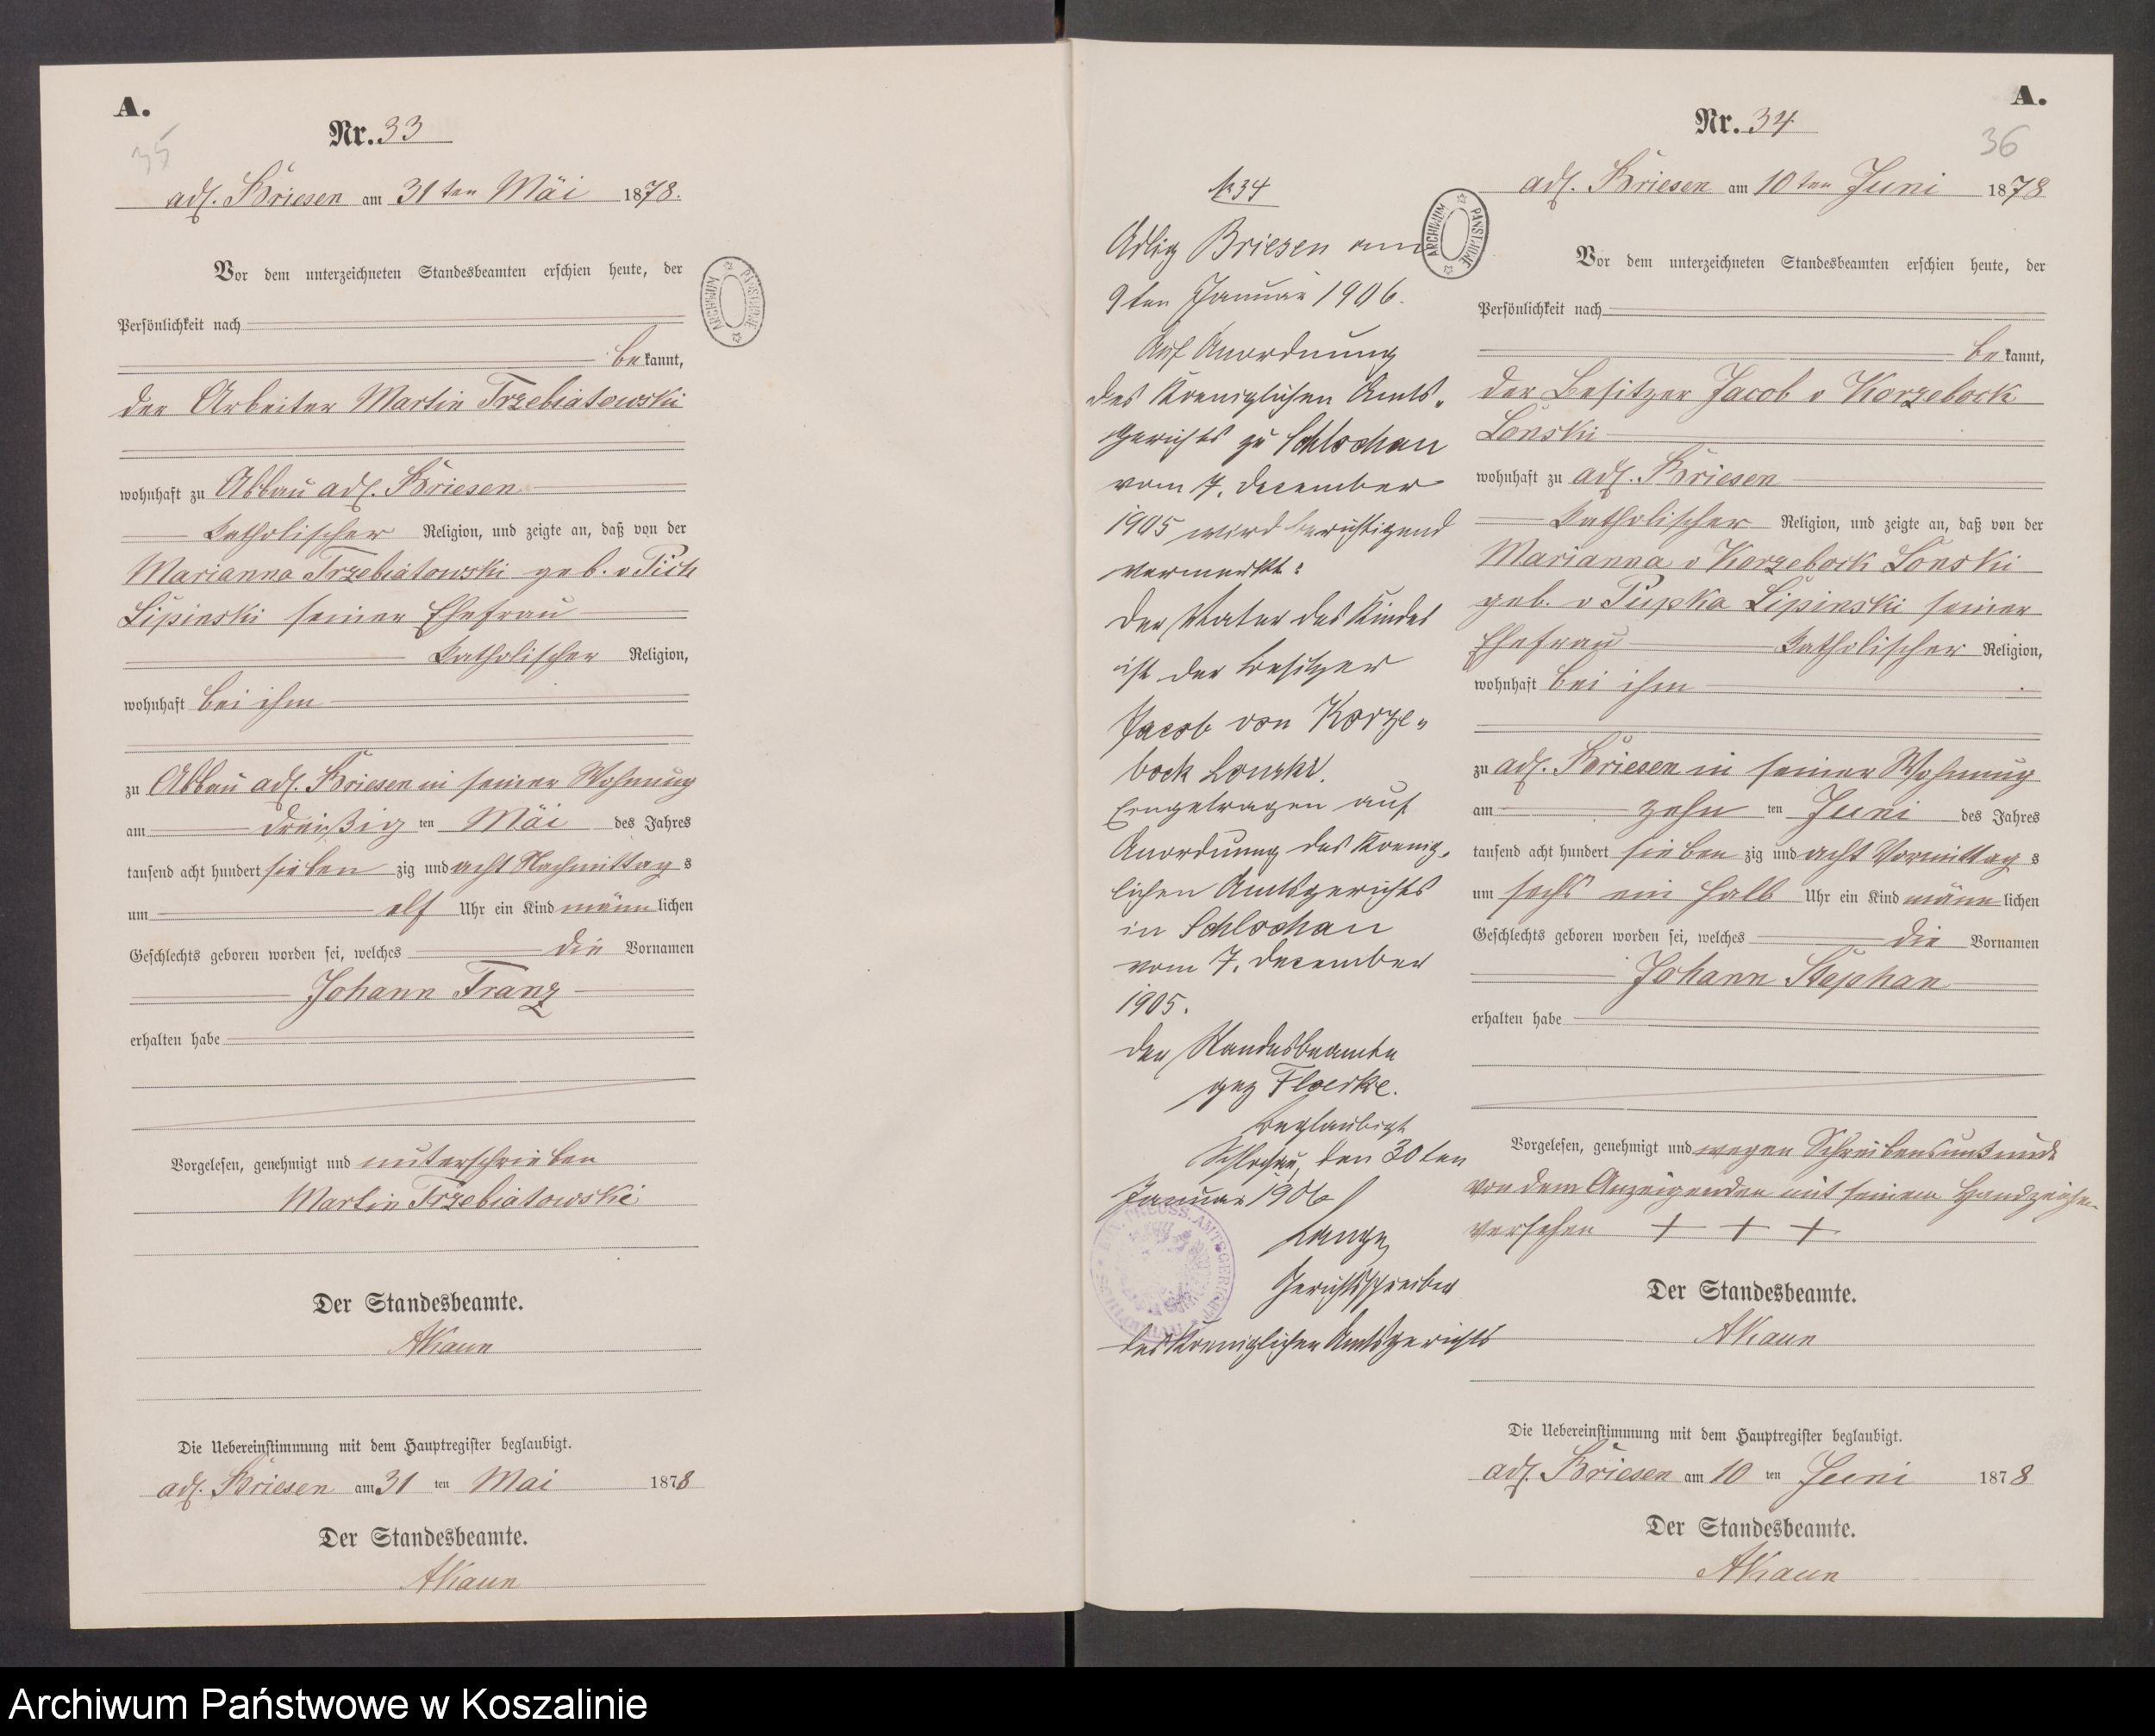 A.
35
Nr. 33
adl. Briesen am 31 ten Mäi 1878.
Vor dem unterzeichneten Standesbeamten erschien heute, der
Persönlichkeit nach
bekannt,
der Arbeiter Martin Trzebiatowski
wohnhaft zu Abbau adl. Briesen
Katholischer Religion, und zeigte an, daß von der
Marianna Trzebiatowski geb. v Pich
Lipinski seiner Ehefrau
Katholischer Religion,
wohnhaft bei ihm
zu Abbau adl. Briesen in seiner Wohnung
am dreißig ten Mäi des Jahres
tausend acht hundert sieben zig und acht Nachmittag s
um elf Uhr ein Kind männ lichen
Geschlechts geboren worden sei, welches die Vornamen
Johann Franz
erhalten habe
Vorgelesen, genehmigt und unterschrieben
Martin Trzebiatowski
Der Standesbeamte.
AKaun
Die Uebereinstimmung mit dem Hauptregister beglaubigt.
adl. Briesen am 31 ten Mai 1878
Der Standesbeamte.
AKaun
ARCHIWUM PAŃSTWOWE
No 34
Adlig Briesen am
9ten Januar 1906.
Auf Anordnung
des Koeniglichen Amts-
gerichts zu Schlochau
vom 7. December
1905 wird berichtigend
vermerkt:
Der Vater des Kindes
ist der Besitzer
Jacob von Korze-
bock Lonski.
Eingetragen auf
Anordnung des Koenig-
lichen Amtsgerichts
in Schlochau
vom 7. December
1905.
Der Standesbeamte
gez Floerke.
Beglaubigt
Schlochau, den 30ten
Januar 1906
Lange
Gerichtsschreiber
des Koeniglichen Amtsgerichts
ARCHIWUM PAŃSTWOWE
A.
36
Nr. 34
adl. Briesen am 10 ten Juni 1878
Vor dem unterzeichneten Standesbeamten erschien heute, der
Persönlichkeit nach
bekannt,
der Besitzer Jacob v Korzebock
Lonski
wohnhaft zu adl. Briesen
Katholischer Religion, und zeigte an, daß von der
Marianna v Korzebock Lonski
geb. v Pupka Lipinski seiner
Ehefrau Katholischer Religion,
wohnhaft bei ihm
zu adl. Briesen in seiner Wohnung
am zehn ten Juni des Jahres
tausend acht hundert sieben zig und acht Vormittag s
um sechs ein halb Uhr ein Kind männ lichen
Geschlechts geboren worden sei, welches die Vornamen
Johann Stephan
erhalten habe
Vorgelesen, genehmigt und wegen Schreibensunkunde
von dem Anzeigenden mit seinem Handzeichen
versehen + + +
Der Standesbeamte.
AKaun
Die Uebereinstimmung mit dem Hauptregister beglaubigt.
adl. Briesen am 10 ten Juni 1878
Der Standesbeamte.
AKaun
Archiwum Państwowe w Koszalinie